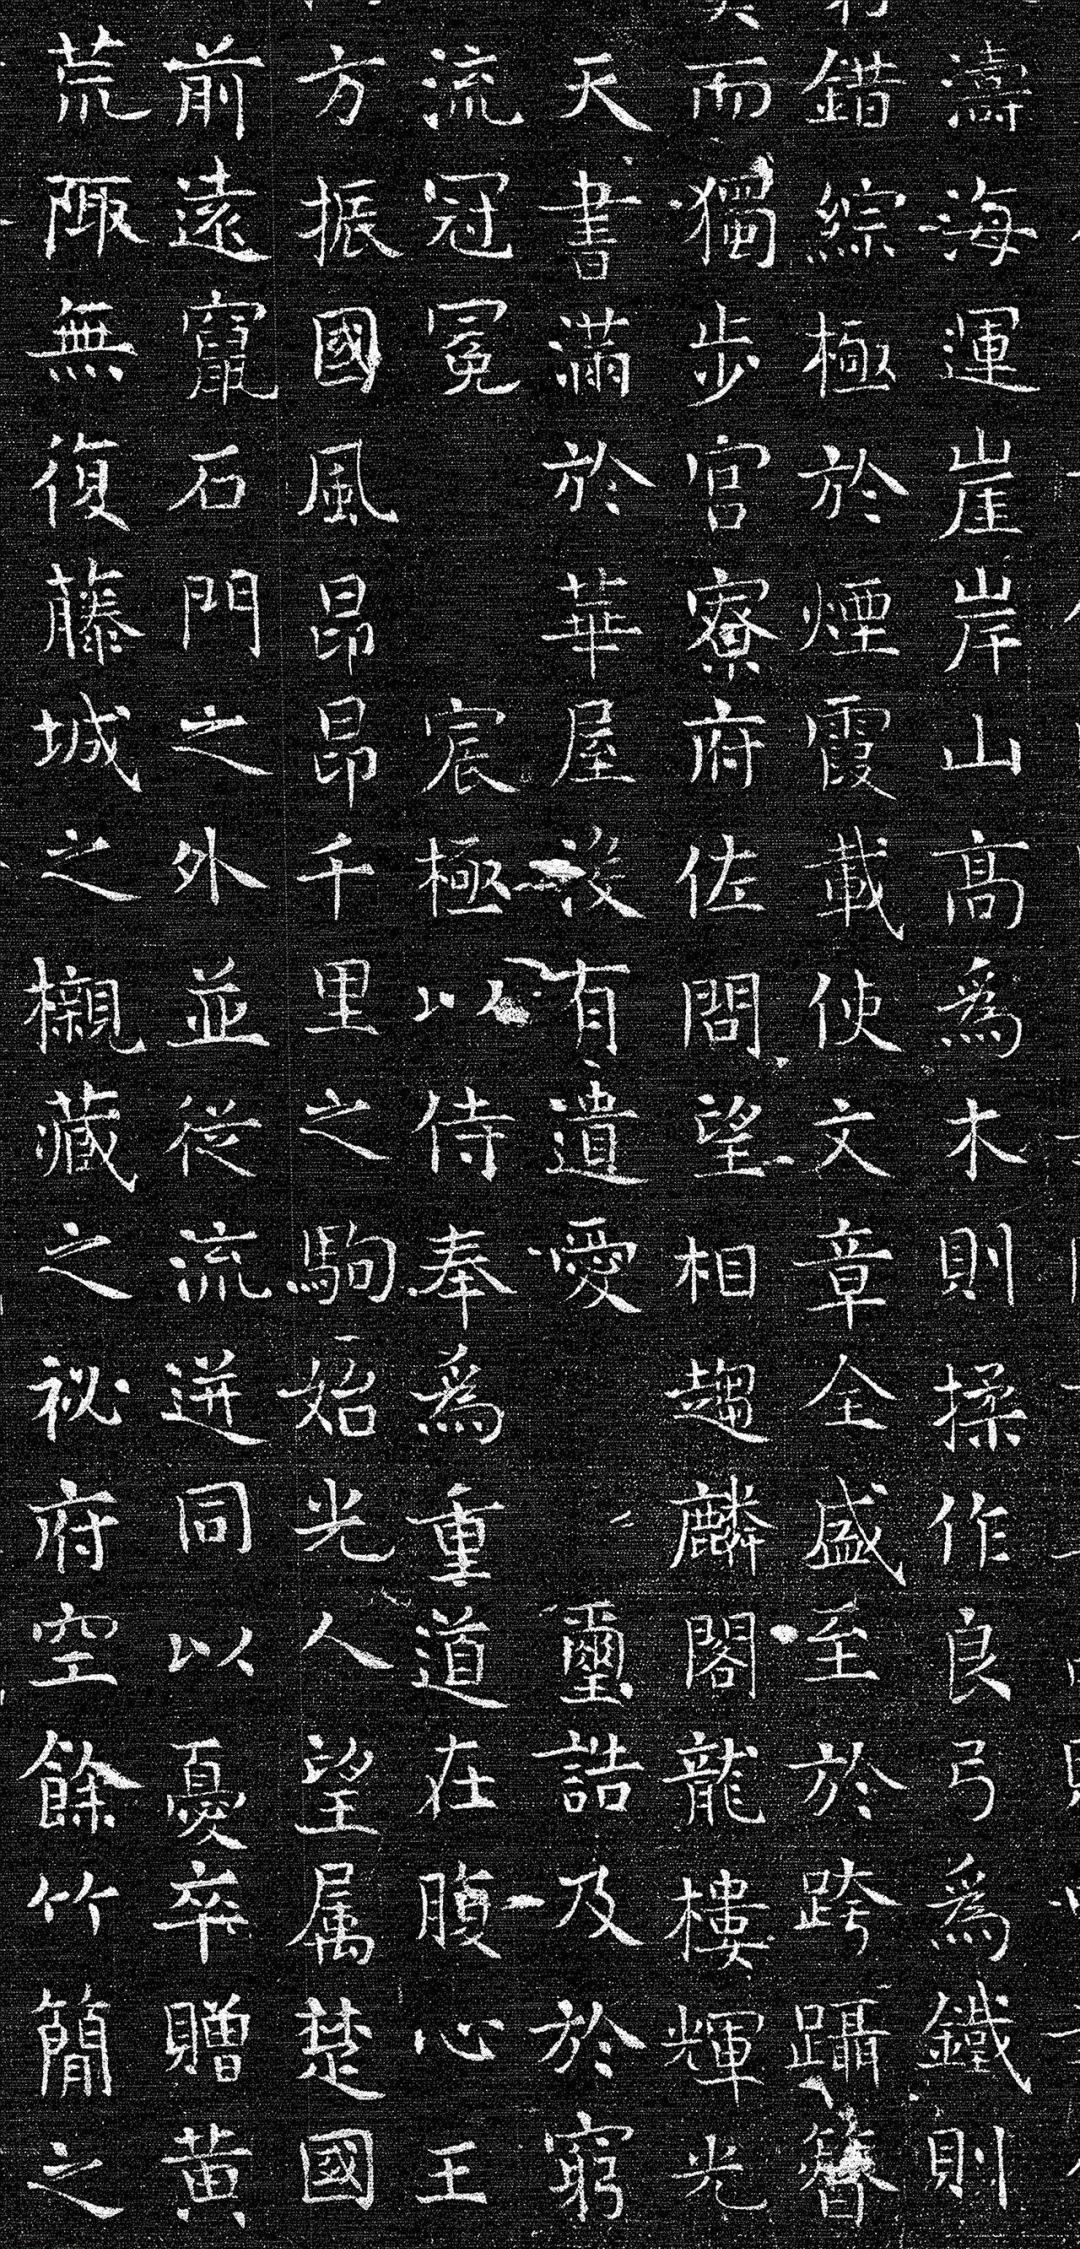 濤海運崖岸山高爲木則揉作良弓爲鐵則
錯綜極於煙霞載使文章全盛至於跨躡簪
而獨步官寮府佐問望相趨麟閣龍樓輝光
天書滿於華屋沒有遺愛璽誥及於窮
流冠冕宸極以侍奉爲重道在腹心王
方振國風昂昂千里之駒始光人望属楚國
前遠竄石門之外並從流迸同以憂卒贈黄
荒陬無復藤城之櫬藏之祕府空餘竹簡之